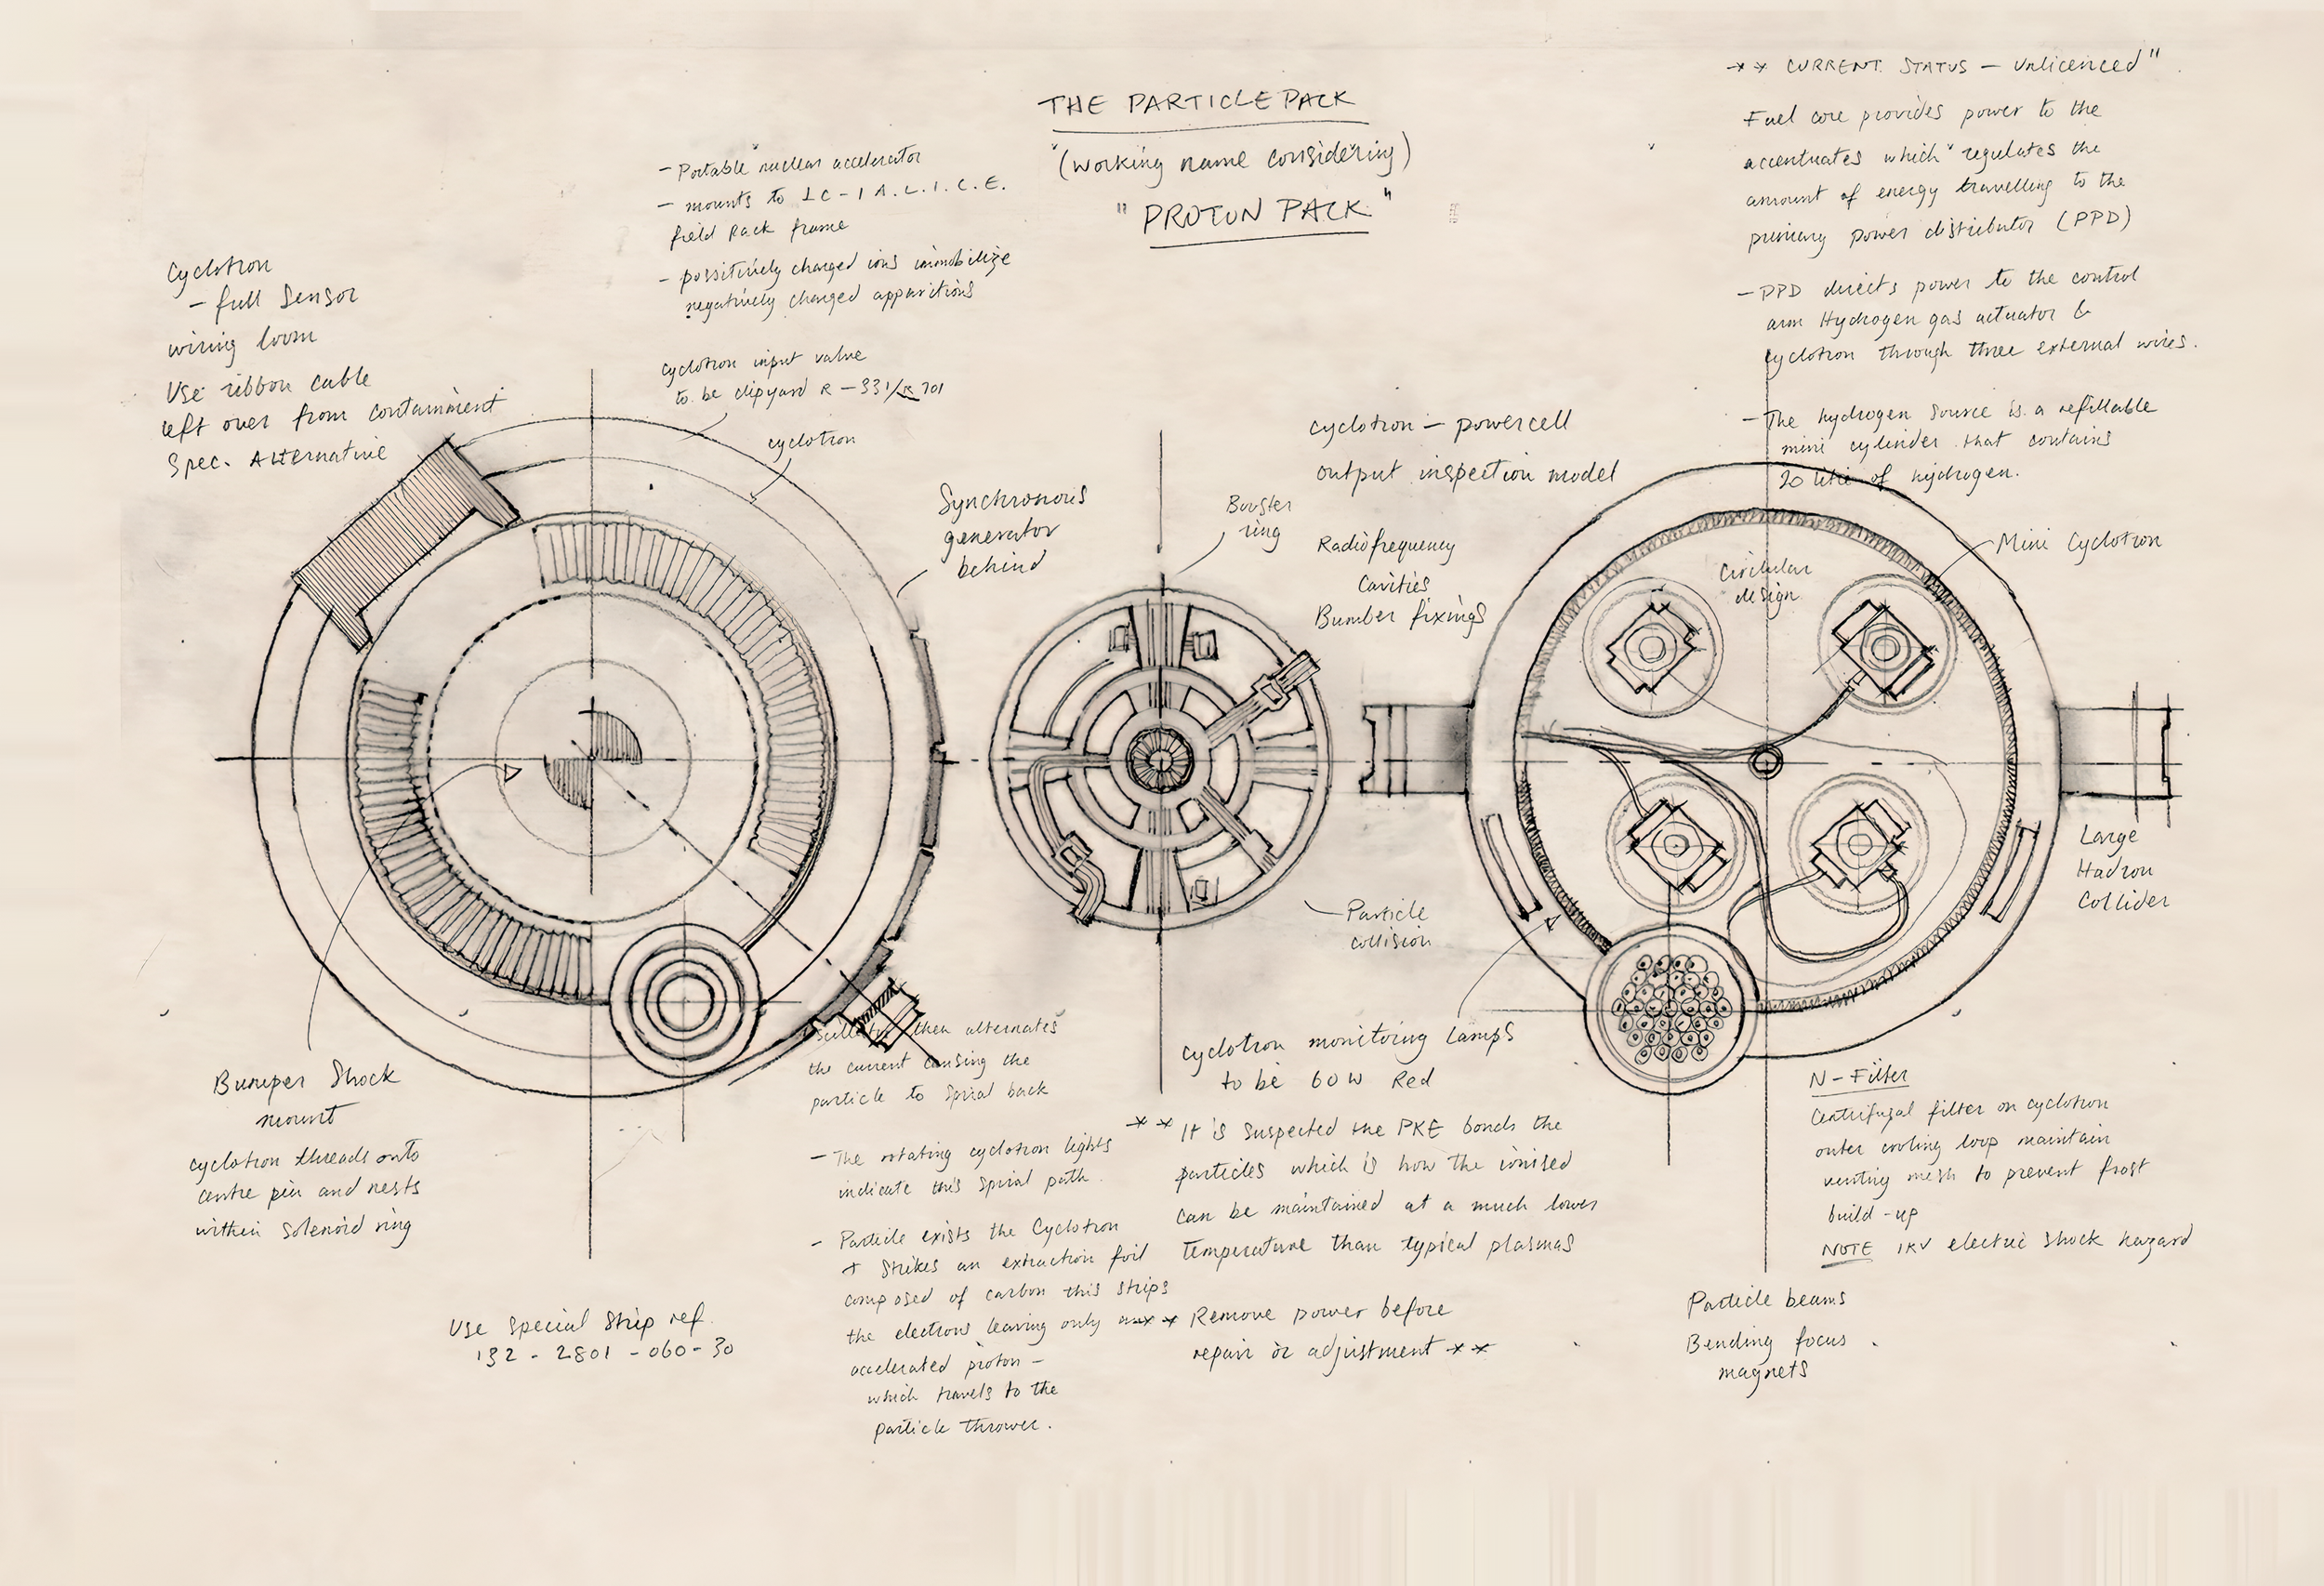 THE PARTICLE PACK
"(working name considering)
"PROTON PACK"
** CURRENT STATUS – Unlicenced"
Fuel core provides power to the
accentuates which regulates the
amount of energy travelling to the
primary power distributor (PPD)
– PPD directs power to the control
arm Hydrogen gas actuator &
cyclotron through three external wires.
– The hydrogen source is a refillable
mini cylinder that contains
20 litre of hydrogen.
– Portable nuclear accelerator
– mounts to LC-1 A.L.I.C.E.
field pack frame
– possitively charged ions immobilize
negatively charged apparitions
cyclotron input valve
to be clipyard R – 331/ 701
cyclotron
Cyclotron
– full sensor
wiring loom
Use ribbon cable
left over from containment
Spec. Alternative
Synchronous
generator
behind
cyclotron – powercell
output inspection model
Booster
ring
Radiofrequency
Cavities
Bumber fixings
Circular
design
Mini Cyclotron
Large
Hadron
Collider
Particle
collision
Bumper Shock
mount
cyclotron threads onto
centre pin and nests
within solenoid ring
Use special strip ref.
132 - 2801 - 060 - 30
then alternates
the current causing the
particle to spiral back
– The rotating cyclotron lights
indicate this spiral path.
– Particle exists the Cyclotron
+ strikes an extraction foil
composed of carbon this strips
the electrons leaving only an
accelerated proton –
which travels to the
particle thrower.
cyclotron monitoring lamps
to be 60W Red
** It is suspected the PKE bonds the
particles which is how the ionised
can be maintained at a much lower
temperature than typical plasmas
** Remove power before
repair or adjustment **
N-Filter
Centrifugal filter on cyclotron
outer cooling loop maintain
venting mesh to prevent frost
build-up
NOTE 1KV electric shock hazard
Particle beams
Bending focus
magnets